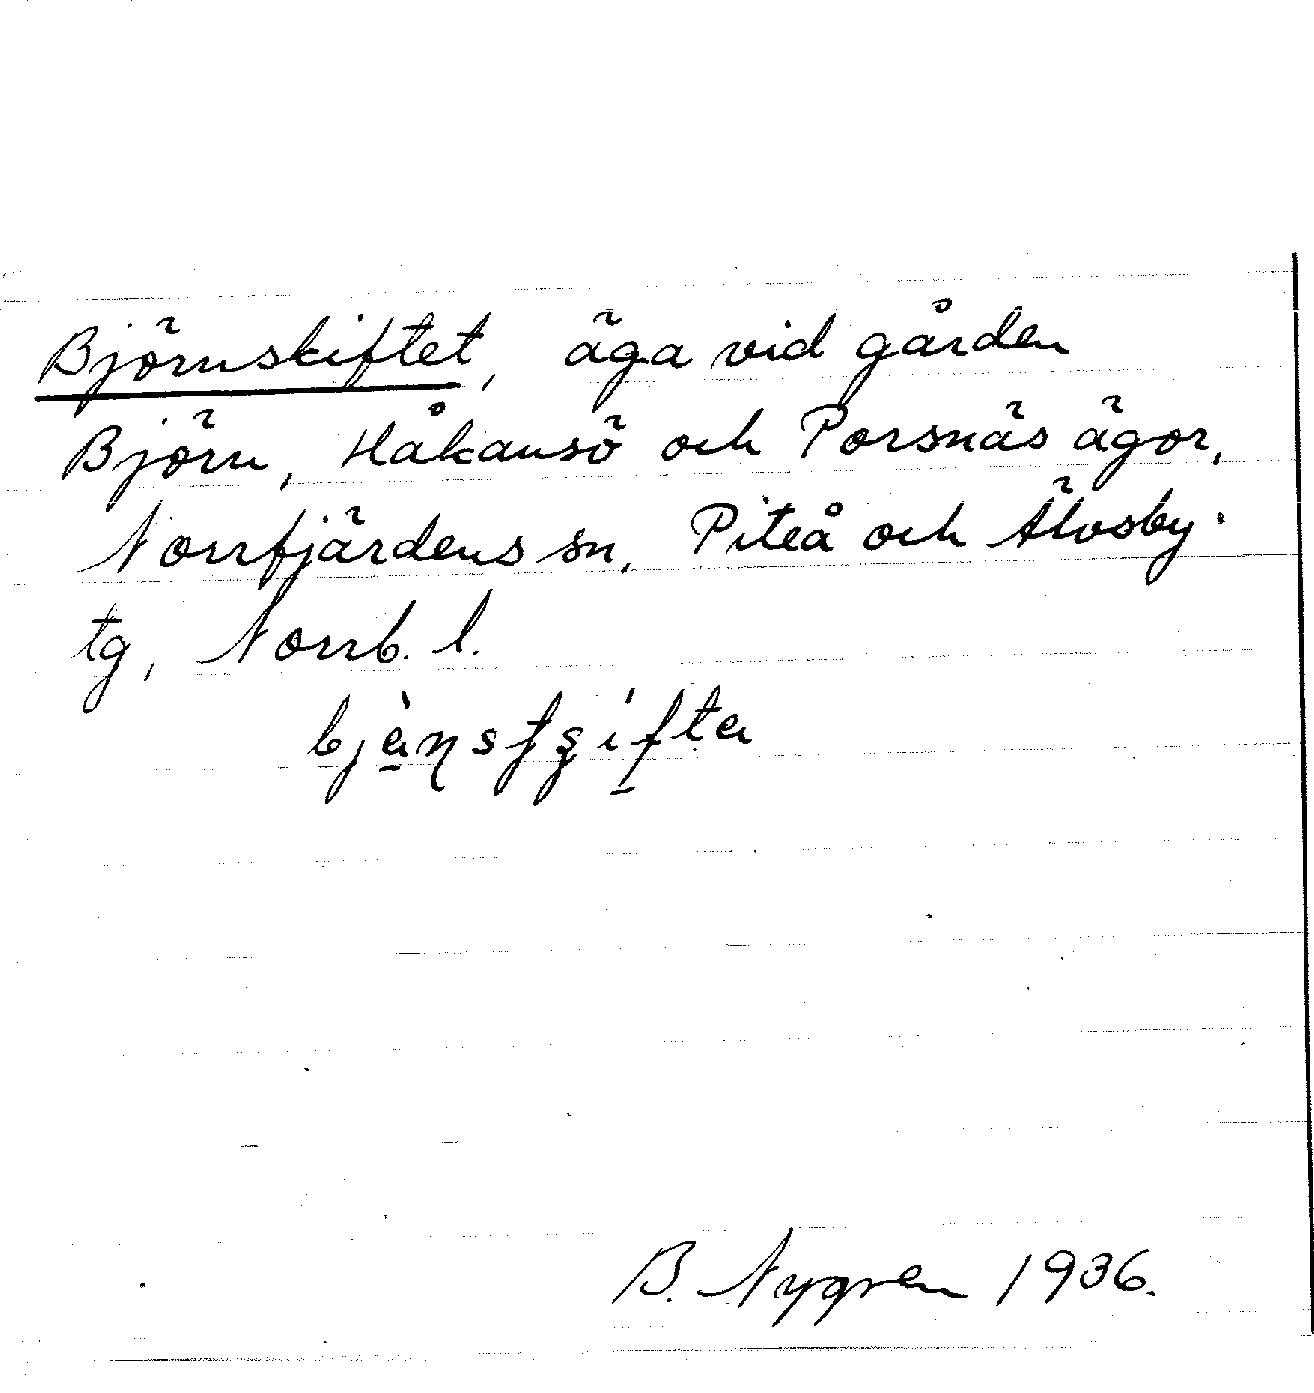 Björnskiftet, äga vid gården
Björn, Håkansö och Porsnäs ägor,
Norrfjärdens sn, Piteå och Älvsby
tg, Norrb. l.
B. Nygren 1936.